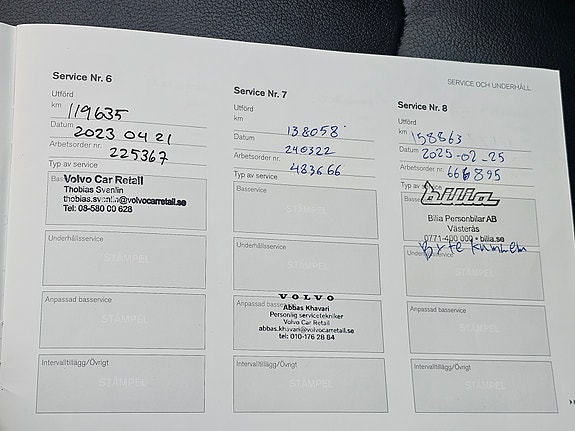 SERVICE OCH UNDERHÅLL
Service Nr. 6
Utförd
km 119635
Datum 2023 04 21
Arbetsorder nr. 225367
Typ av service
Volvo Car Retail
Thobias Svanlin
thobias.svanlin@volvocarretail.se
Tel: 08-580 00 628
Underhållsservice
STÄMPEL
Anpassad basservice
STÄMPEL
Intervalltillägg/Övrigt
STÄMPEL
Service Nr. 7
Utförd
km 138058
Datum 240322
Arbetsorder nr. 483666
Typ av service
Basservice
STÄMPEL
Underhållsservice
STÄMPEL
Anpassad basservice
VOLVO
Abbas Khavari
Personlig servicetekniker
Volvo Car Retail
abbas.khavari@volvocarretail.se
tel: 010-176 28 84
Intervalltillägg/Övrigt
STÄMPEL
Service Nr. 8
Utförd
km 158863
Datum 2025-02-25
Arbetsorder nr. 666895
Typ av service
Basservice
bilia
Bilia Personbilar AB
Västerås
0771-400 000 • bilia.se
Byte kamrem
STÄMPEL
Anpassad basservice
STÄMPEL
Intervalltillägg/Övrigt
STÄMPEL